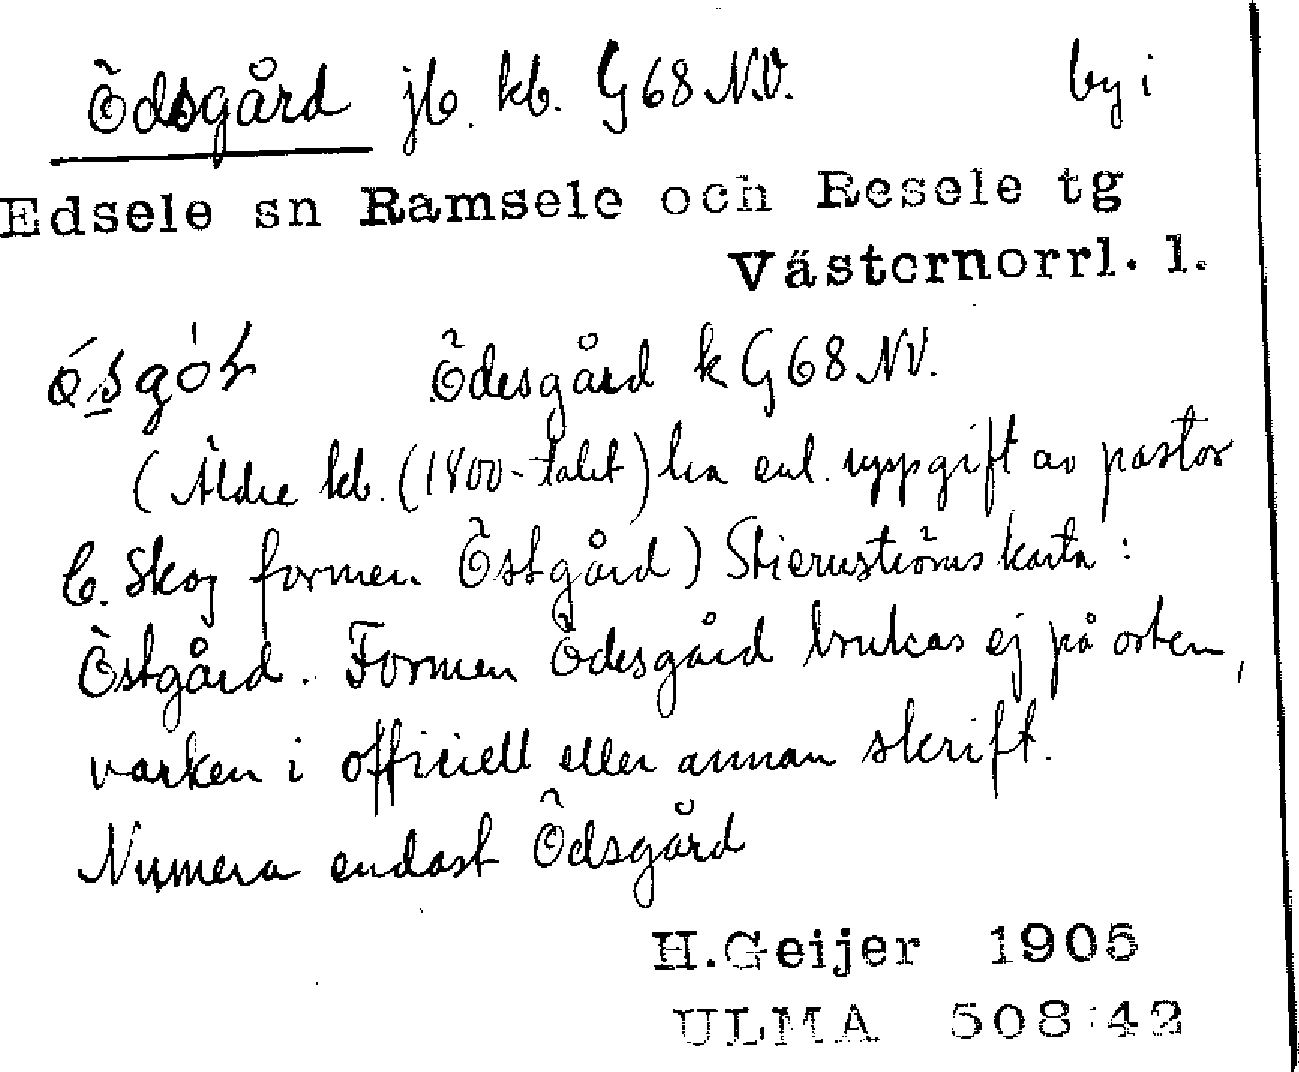 Ödsgård jb. kb. G 68 N.V. by i
Edsele sn Ramsele och Resele tg
Västernorrl. l.
Ödesgård k G 68 NV.
(Äldre kb. (1800-talet) ha enl. uppgift av pastor
C. Skog formen Östgård) Stiernströms karta:
Östgård. Formen Ödesgård brukas ej på orten,
varken i officiell eller annan skrift.
Numera endast Ödsgård
H.Geijer 1905
ULMA 508:42